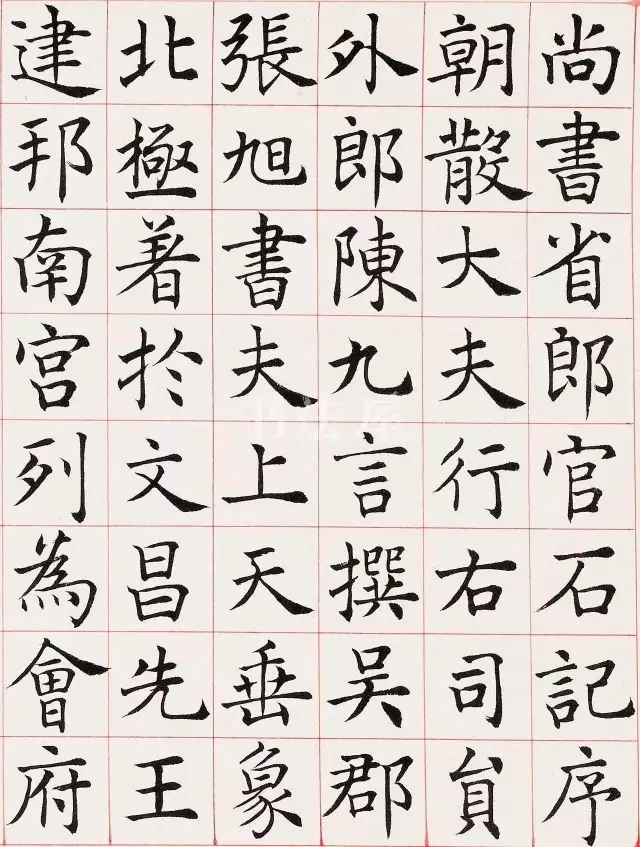 尚書省郎官石記序
朝散大夫行右司員
外郎陳九言撰吳郡
張旭書夫上天垂象
北極著於文昌先王
建邦南宮列為會府
书法屋